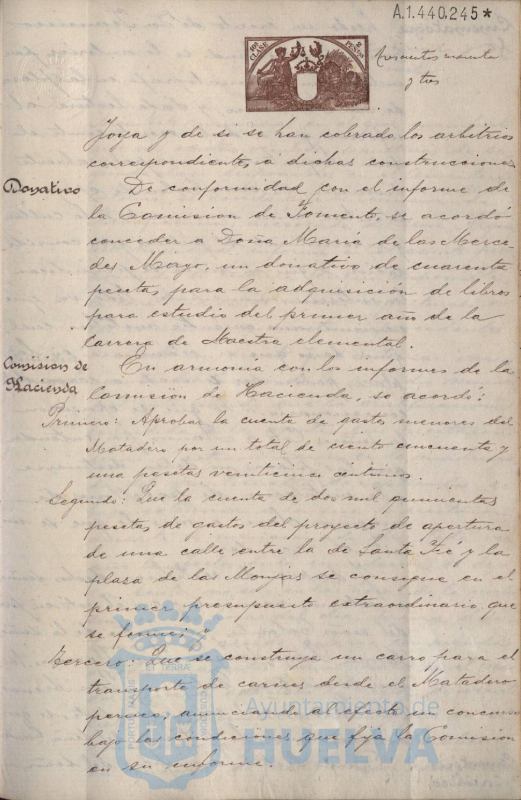 A.1.440.245*
10ª CLASE
2 PESETAS
Trescientos noventa
y tres
Joya y de si se han cobrado los arbitrios
correspondientes a dichas construcciones
Donativo
De conformidad con el informe de
la Comision de Fomento, se acordó
conceder a Doña María de las Merce
des Mayo, un donativo de cuarenta
pesetas para la adquisición de libros
para estudio del primer año de la
carrera de Maestra elemental.
Comision de
Hacienda
En armonia con los informes de la
Comisión de Hacienda, se acordó:
Primero: Aprobar la cuenta de gastos menores del
Matadero por un total de ciento cincuenta y
una pesetas veinticinco centimos.
Segundo: Que la cuenta de dos mil quinientas
pesetas, de gastos del proyecto de apertura
de una calle entre la de Santa Fé y la
plaza de las Monjas se consigne en el
primer presupuesto extraordinario que
se
Tercero: Que se construya un carro para el
transporte de carnes desde el Matadero
anunciando al efecto un concurso
bajo las condiciones que fija la Comision
en su informe.
Ayuntamiento de
HUELVA